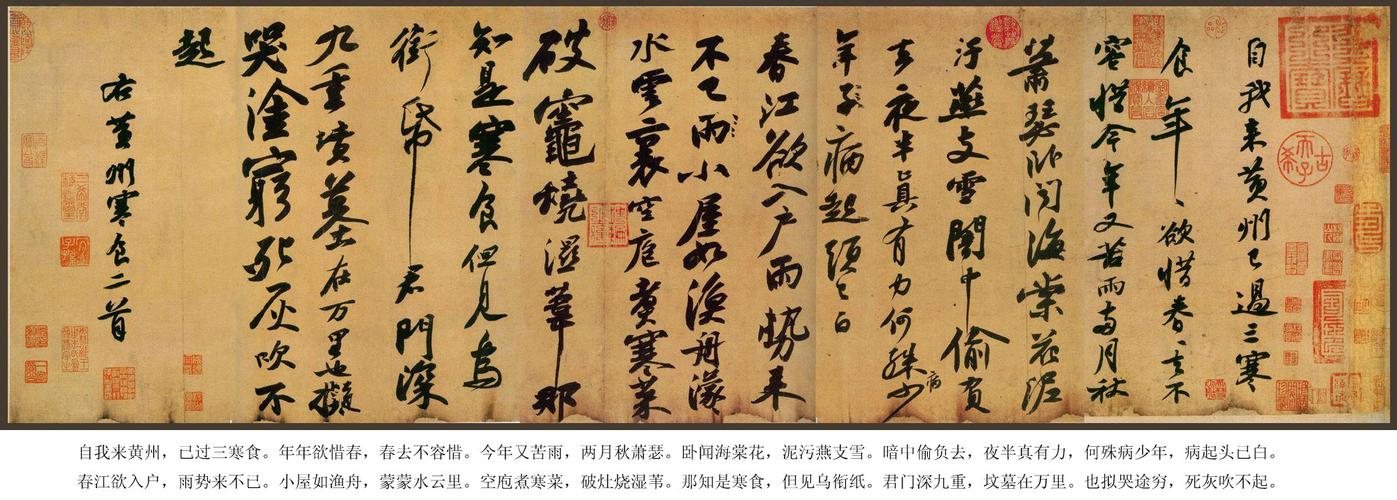 自我來黃州已過三寒
食年〻欲惜春〻去不
容惜今年又苦雨兩月秋
蕭瑟卧聞海棠花泥
汙燕支雪闇中偷負
去夜半真有力何殊病少
年子病起頭已白
春江欲入户雨勢來
不已雨小屋如漁舟濛〻
水雲裏空庖煮寒菜
破竈燒濕葦那
知是寒食但見烏
銜帋君門深
九重墳墓在万里也擬
哭塗窮死灰吹不
起
右黃州寒食二首
古希天子
自我来黄州，已过三寒食。年年欲惜春，春去不容惜。今年又苦雨，两月秋萧瑟。卧闻海棠花，泥污燕支雪。暗中偷负去，夜半真有力，何殊病少年，病起头已白。
春江欲入户，雨势来不已。小屋如渔舟，蒙蒙水云里。空庖煮寒菜，破灶烧湿苇。那知是寒食，但见乌衔纸。君门深九重，坟墓在万里。也拟哭途穷，死灰吹不起。